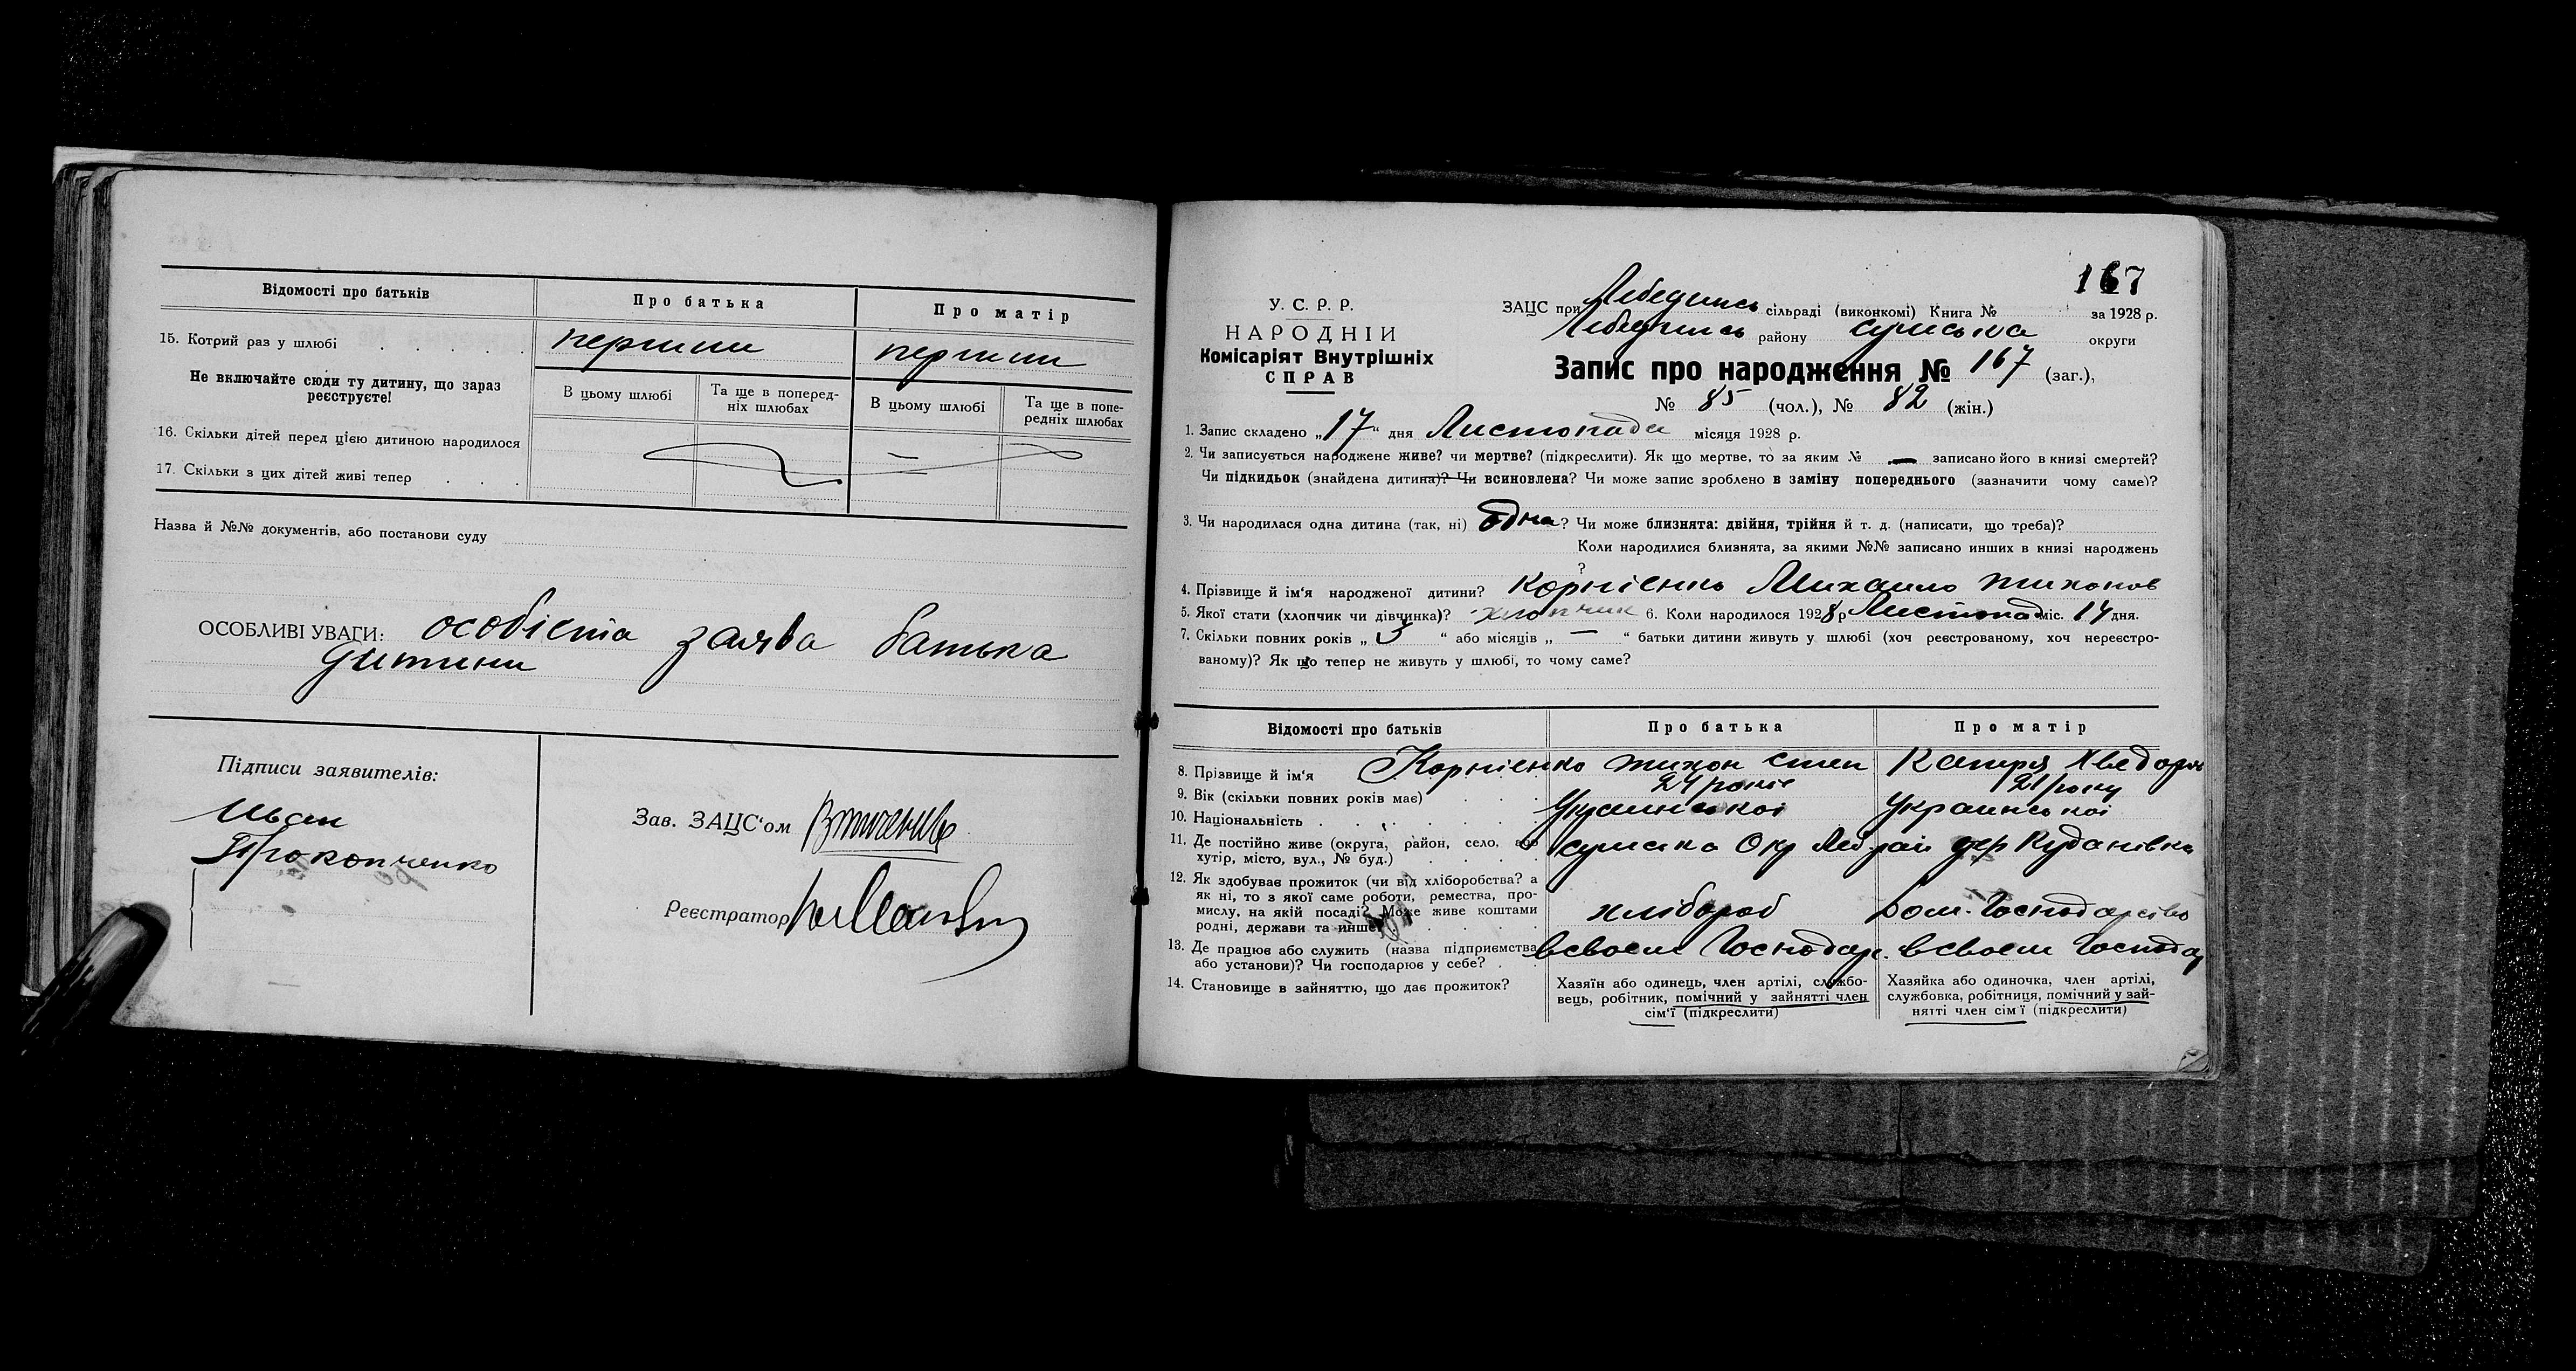 Відомості про батьків
Про батька
Про матір
15. Котрий раз у шлюбі . . . . .
перший
перший
Не включайте сюди ту дитину, що зараз
реєструєте!
В цьому шлюбі
Та ще в поперед-
ніх шлюбах
В цьому шлюбі
Та ще в попе-
редніх шлюбах
16. Скільки дітей перед цією дитиною народилося
—
17. Скільки з цих дітей живі тепер . . .
—
Назва й №№ документів, або постанови суду
ОСОБЛИВІ УВАГИ: особіста заява батька
дитини
Підписи заявителів:
Иван
Прокопченко
Зав. ЗАЦС'ом
Реєстратор
167
У. С. Р. Р.
НАРОДНІЙ
Комісаріят Внутрішніх
СПРАВ
ЗАЦС при Лебединсь сільраді (виконкомі) Книга № за 1928 р.
Лебединсь району сумська округи
Запис про народження № 167 (заг.),
№ 85 (чол.), № 82 (жін.)
1. Запис складено „17“ дня Листопада місяця 1928 р.
2. Чи записується народжене живе? чи мертве? (підкреслити). Як що мертве, то за яким № — записано його в книзі смертей?
Чи підкидьок (знайдена дитина)? Чи всиновлена? Чи може запис зроблено в заміну попереднього (зазначити чому саме)?
3. Чи народилася одна дитина (так, ні) одна? Чи може близнята: двійня, трійня й т. д. (написати, що треба)?
Коли народилися близнята, за якими №№ записано инших в книзі народжень
?
4. Прізвище й ім'я народженої дитини? Корнієнко Михаило тихонов
5. Якої стати (хлопчик чи дівчинка)? хлопчик 6. Коли народилося 1928 р Листопад міс. 14 дня.
7. Скільки повних років „ 3 “ або місяців „ — “ батьки дитини живуть у шлюбі (хоч реєстрованому, хоч нереєстро-
ваному)? Як що тепер не живуть у шлюбі, то чому саме?
Відомості про батьків
Про батька
Про матір
8. Прізвище й ім'я Корнієнко тихон степ
Катря Хведоря
9. Вік (скільки повних років має) . . .
24 років
21 року
10. Національність . . . . . .
Украинської
Украинської
11. Де постійно живе (округа, район, село, або
хутір, місто, вул., № буд.) . . . .
сумська Окр Леб рай дер Кудановка
12. Як здобуває прожиток (чи від хліборобства? а
як ні, то з якої саме роботи, ремества, про-
мислу, на якій посаді? Може живе коштами
родні, держави та инше) . . . .
хлібороб
Дом. Господарство
13. Де працює або служить (назва підприємства
або установи)? Чи господарює у себе? .
в своем Господар.
в своем Господар
14. Становище в зайняттю, що дає прожиток?
Хазяїн або одинець, член артілі, службо-
вець, робітник, помічний у зайнятті член
сім'ї (підкреслити)
Хазяйка або одиночка, член артілі,
службовка, робітниця, помічний у зай-
нятті член сім'ї (підкреслити)